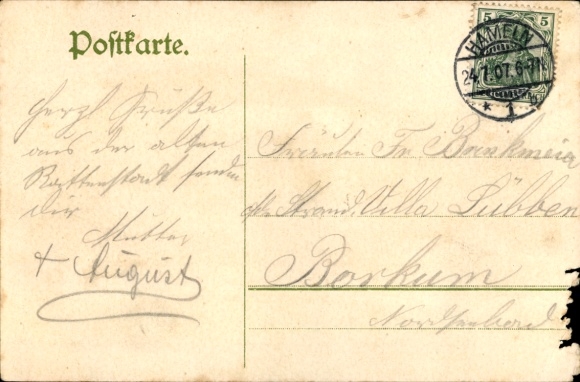 Postkarte.
5 5
HAMELN
24.7.07.6-7N.
* 1
Herzl Grüße
aus der alten
Rattenstadt senden
dir
Mutter
+ August
Fräulein Fr. Brinkmeier
Strand, Villa Lübben
Borkum
Nordseebad